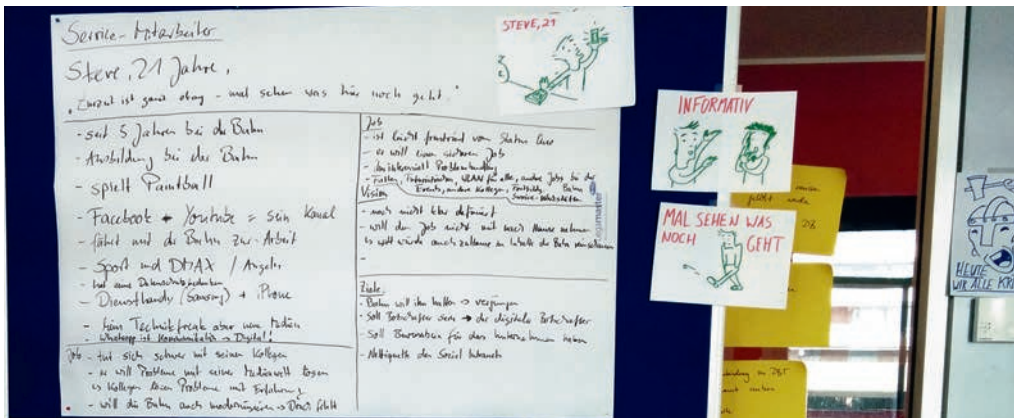 Service-Mitarbeiter
Steve, 21 Jahre,
ist ganz okay - mal sehen was hier noch geht."
- seit 5 Jahren bei der Bahn
- Ausbildung bei der Bahn
- spielt Paintball
- Facebook + Youtube = sein Kanal
- fährt mit der Bahn zur Arbeit
- Sport und DMAX / Angeln
- hat eine Datenschutzbedenken
- Diensthandy (Samsung) + iPhone
- kein Technikfreak aber neue Medien
- Whatsapp ist Kommunikation → Digital!
Job - tut sich schwer mit seinen Kollegen
- er will Probleme mit seiner Medienwelt lösen
Kollegen lösen Probleme mit Erfahrung
- will die Bahn auch modernisieren → fehlt
Job
- ist leicht frustriert vom Status Quo
- er will einen sicheren Job
- ihn interessiert Problemhandling
- WLAN für alle, andere Jobs bei der Bahn
Events, andere Kollegen,
Service-Werkstätten
Vision
- noch nicht klar definiert
- will den Job nicht mit nach Hause nehmen
es würde auch zuhause in Inhalte der Bahn
-
Ziele
- Bahn will ihn halten → verjüngen
- Soll Botschafter sein → der digitale Botschafter
- Soll Bewusstsein für das Unternehmen haben
- Nettiquette des Social Intranets
legamaster
STEVE, 21
INFORMATIV
MAL SEHEN WAS
NOCH GEHT
HEUTE
WIR ALLE